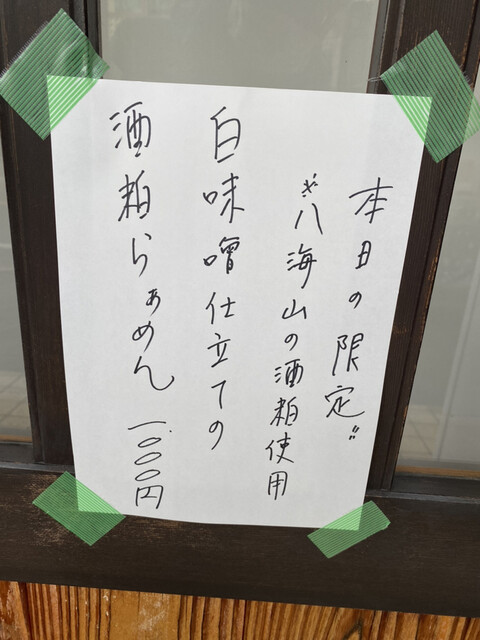 本日の限定〃
※八海山の酒粕使用
白味噌仕立ての
酒粕らぁめん 一、〇〇〇円